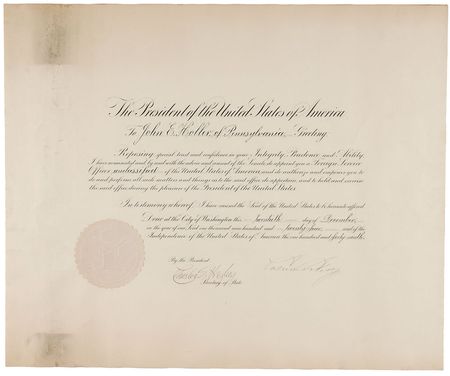 The President of the United States of America
To John E. Holler, of Pennsylvania, Greeting:
Reposing special trust and confidence in your Integrity, Prudence and Ability,
I have nominated and by and with the advice and consent of the Senate do appoint you a Foreign Service
Officer, unclassified, of the United States of America, and do authorize and empower you to
do and perform all such matters and things as to the said office do appertain, and to hold and exercise
the said office during the pleasure of the President of the United States.
In testimony whereof, I have caused the Seal of the United States to be hereunto affixed.
Done at the City of Washington this twentieth day of December,
in the year of our Lord one thousand nine hundred and twenty-four, and of the
Independence of the United States of America the one hundred and forty-ninth.
By the President:
Secretary of State.